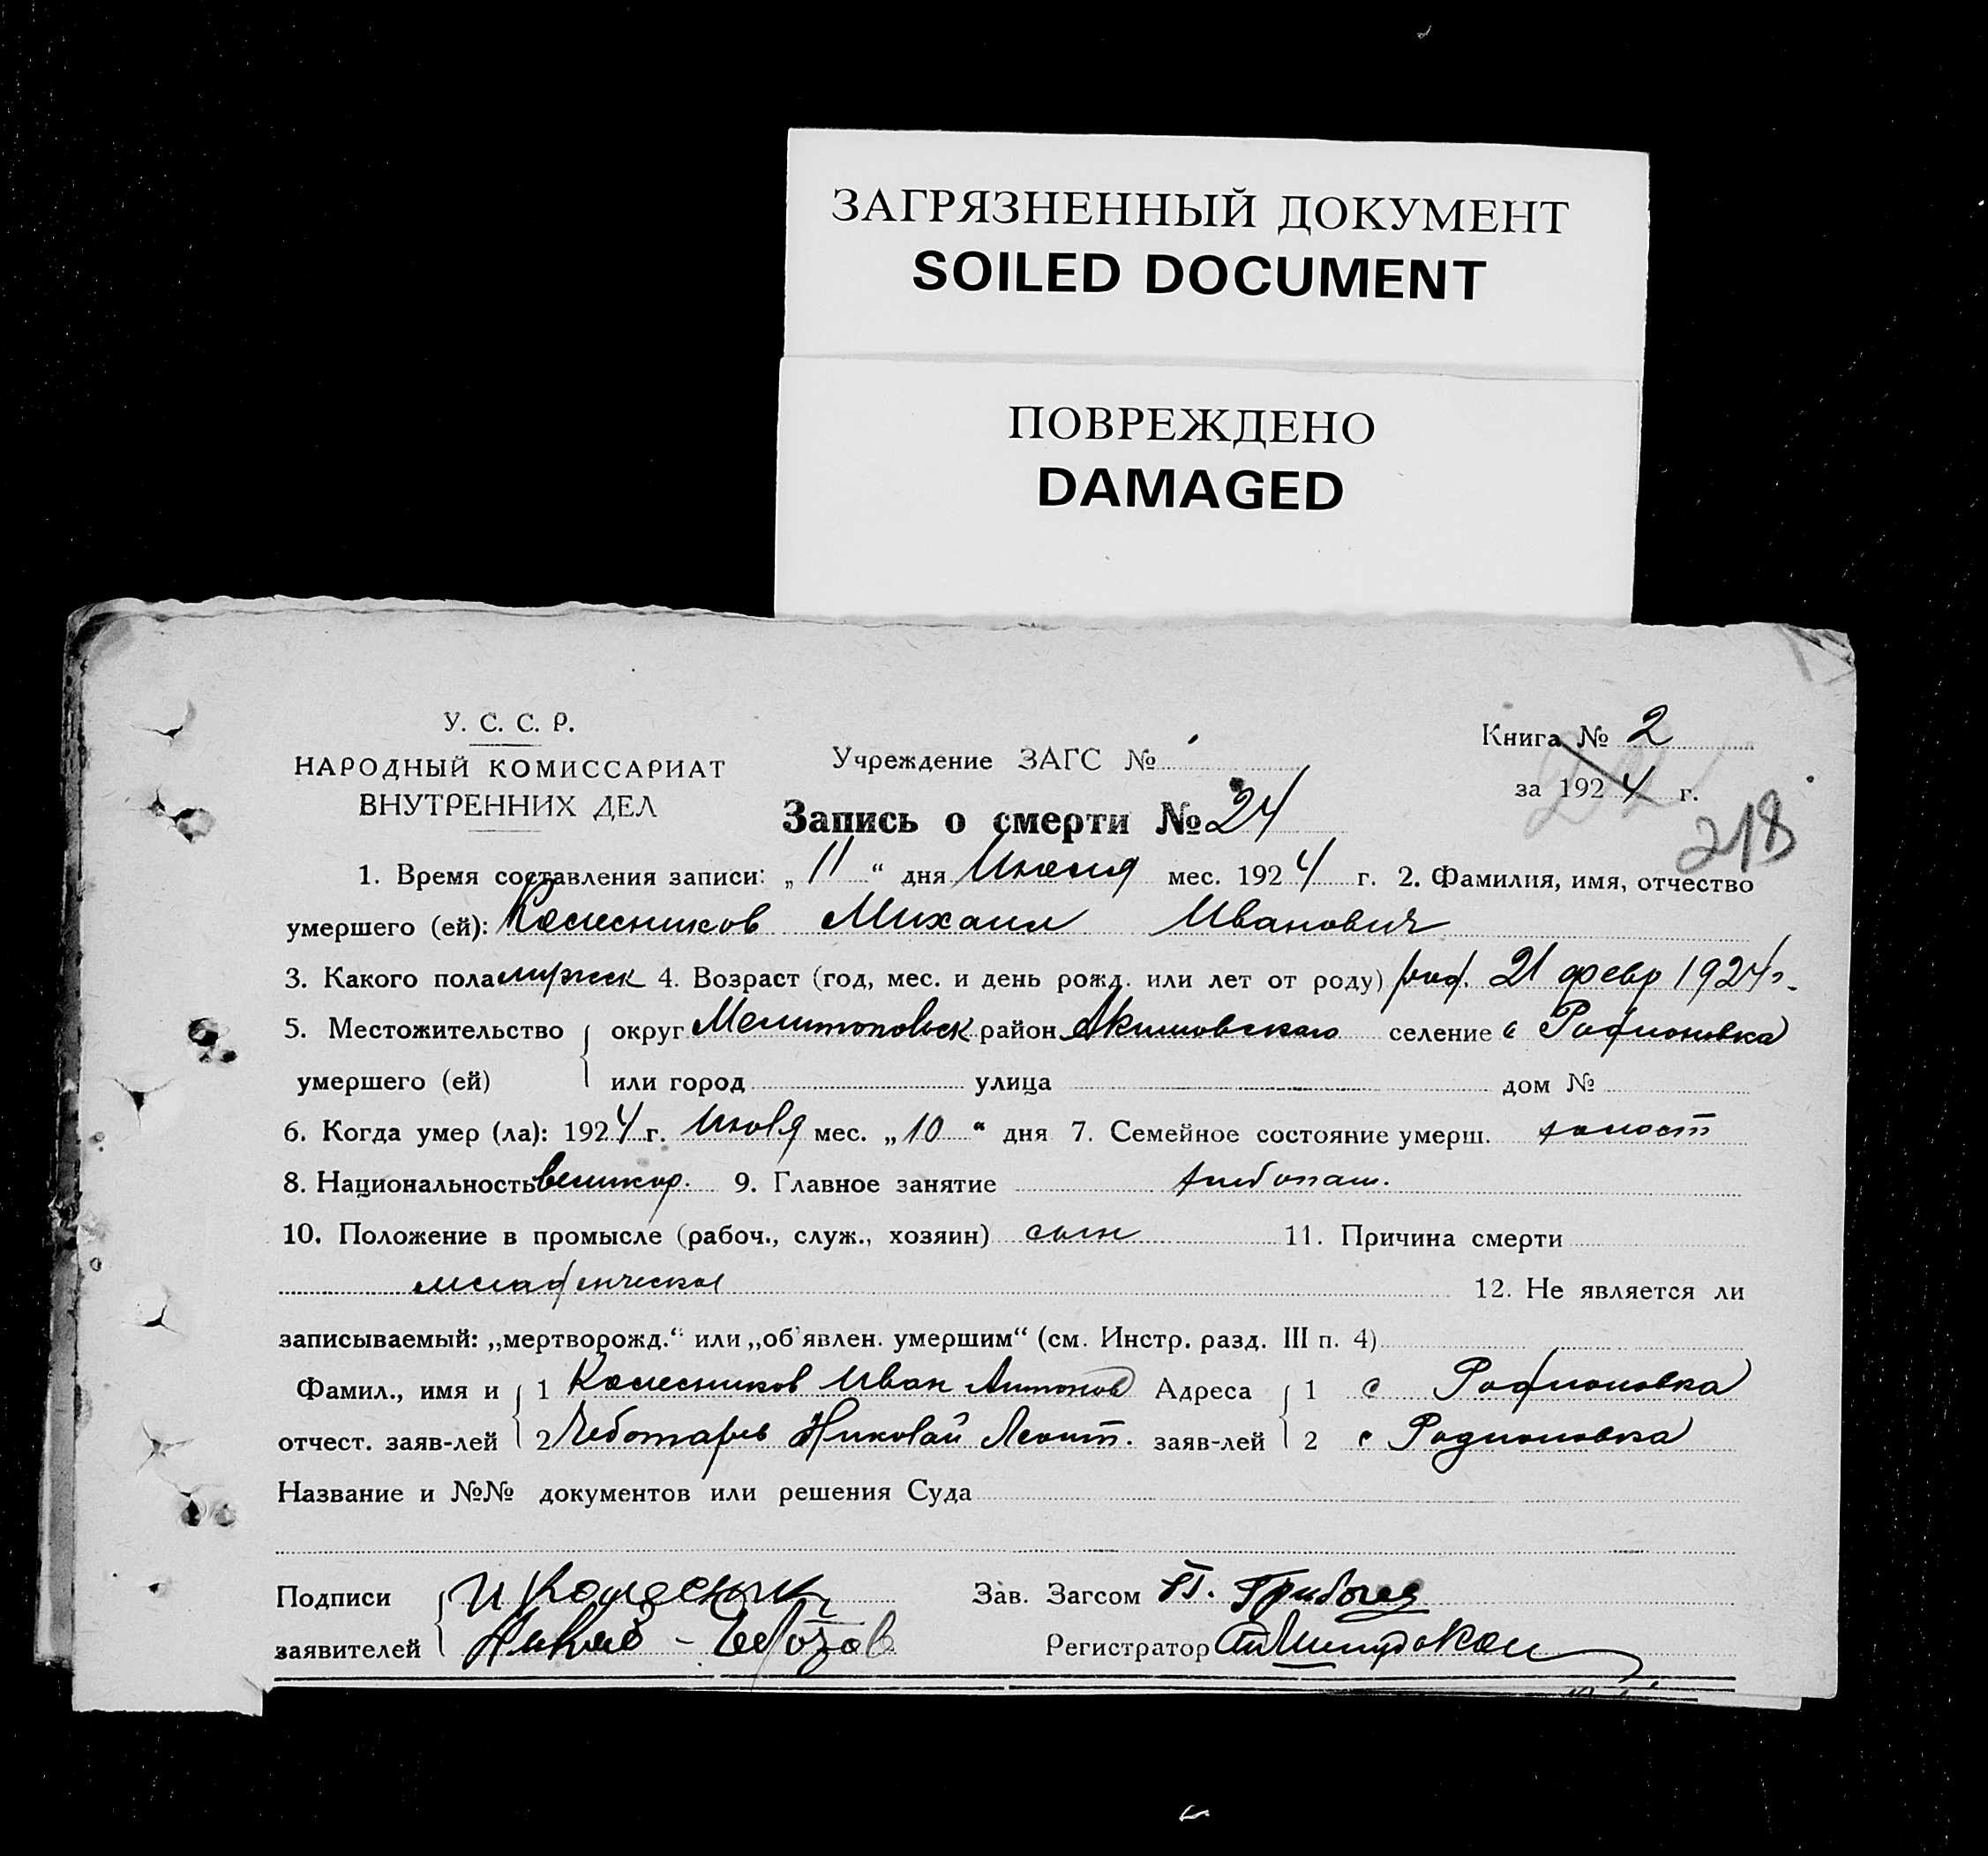 ЗАГРЯЗНЕННЫЙ ДОКУМЕНТ
SOILED DOCUMENT
ПОВРЕЖДЕНО
DAMAGED
У. С. С. Р.
НАРОДНЫЙ КОМИССАРИАТ
ВНУТРЕННИХ ДЕЛ
Учреждение ЗАГС №
Запись о смерти № 24
Книга № 2
за 1924 г.
218
1. Время составления записи: „11“ дня мес. 1924 г. 2. Фамилия, имя, отчество
умершего (ей): Колесников Михаил Иванович
3. Какого пола мужск 4. Возраст (год, мес. и день рожд. или лет от роду) род. 21 февр 1924 г.
5. Местожительство округ Мелитопольск район Акимовского селение с Родионовка
умершего (ей) или город улица дом №
6. Когда умер (ла): 1924 г. мес. „10“ дня 7. Семейное состояние умерш. холост
8. Национальность великор. 9. Главное занятие хлебопаш.
10. Положение в промысле (рабоч., служ., хозяин) сын 11. Причина смерти
младенческая 12. Не является ли
записываемый: „мертворожд.“ или „об'явлен. умершим“ (см. Инстр. разд. III п. 4)
Фамил., имя и 1 Колесников Иван Антонов Адреса 1 с Родионовка
отчест. заяв-лей 2 Чеботарев Николай Леонт. заяв-лей 2 с Родионовка
Название и №№ документов или решения Суда
Подписи И Колесник Зав. Загсом
заявителей Регистратор